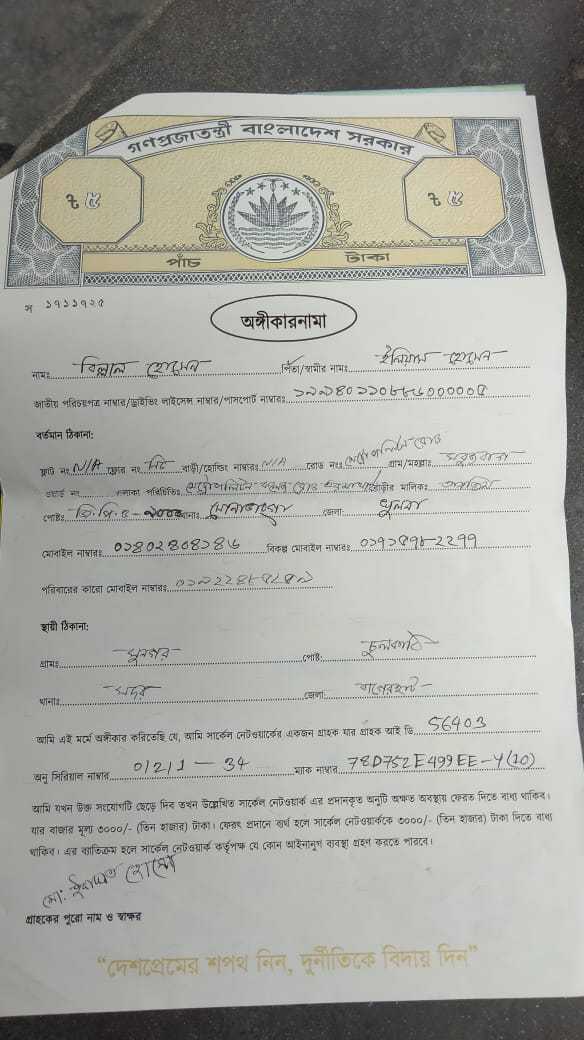 গণপ্রজাতন্ত্রী বাংলাদেশ সরকার
৳ ৫ ৳ ৫
পাঁচ টাকা
স ১৭১১৭২৫
অঙ্গীকারনামা
নামঃ বিল্লাল হোসেন পিতা/স্বামীর নামঃ ইলিয়াস হোসেন
জাতীয় পরিচয়পত্র নাম্বার/ড্রাইভিং লাইসেন্স নাম্বার/পাসপোর্ট নাম্বারঃ
বর্তমান ঠিকানা:
ফ্লাট নং N/A ফ্লোর নং বাড়ী/হোল্ডিং নাম্বারঃ N/A রোড নংঃ গ্রাম/মহল্লাঃ
ওয়ার্ড নং এলাকা পরিচিতিঃ মেট্রোপলিটন কলেজ রোড বাড়ীর মালিকঃ
পোষ্টঃ জি.পি.ও - ৯০০০ থানাঃ সোনাডাঙ্গা জেলাঃ খুলনা
মোবাইল নাম্বারঃ বিকল্প মোবাইল নাম্বারঃ
পরিবারের কারো মোবাইল নাম্বারঃ
স্থায়ী ঠিকানা:
গ্রামঃ সুনগর পোষ্ট: চুলকাঠি
থানাঃ সদর জেলাঃ বাগেরহাট
আমি এই মর্মে অঙ্গীকার করিতেছি যে, আমি সার্কেল নেটওয়ার্কের একজন গ্রাহক যার গ্রাহক আই ডি 56403
অনু সিরিয়াল নাম্বার 0/2/1 - 34 ম্যাক নাম্বার 78D752E499EE-Y(10)
আমি যখন উক্ত সংযোগটি ছেড়ে দিব তখন উল্লেখিত সার্কেল নেটওয়ার্ক এর প্রদানকৃত অনুটি অক্ষত অবস্থায় ফেরত দিতে বাধ্য থাকিব।
যার বাজার মূল্য ৩০০০/- (তিন হাজার) টাকা। ফেরৎ প্রদানে ব্যর্থ হলে সার্কেল নেটওয়ার্ককে ৩০০০/- (তিন হাজার) টাকা দিতে বাধ্য
থাকিব। এর ব্যতিক্রম হলে সার্কেল নেটওয়ার্ক কর্তৃপক্ষ যে কোন আইনানুগ ব্যবস্থা গ্রহণ করতে পারবে।
মো: হোসেন
গ্রাহকের পুরো নাম ও স্বাক্ষর
“দেশপ্রেমের শপথ নিন, দুর্নীতিকে বিদায় দিন”